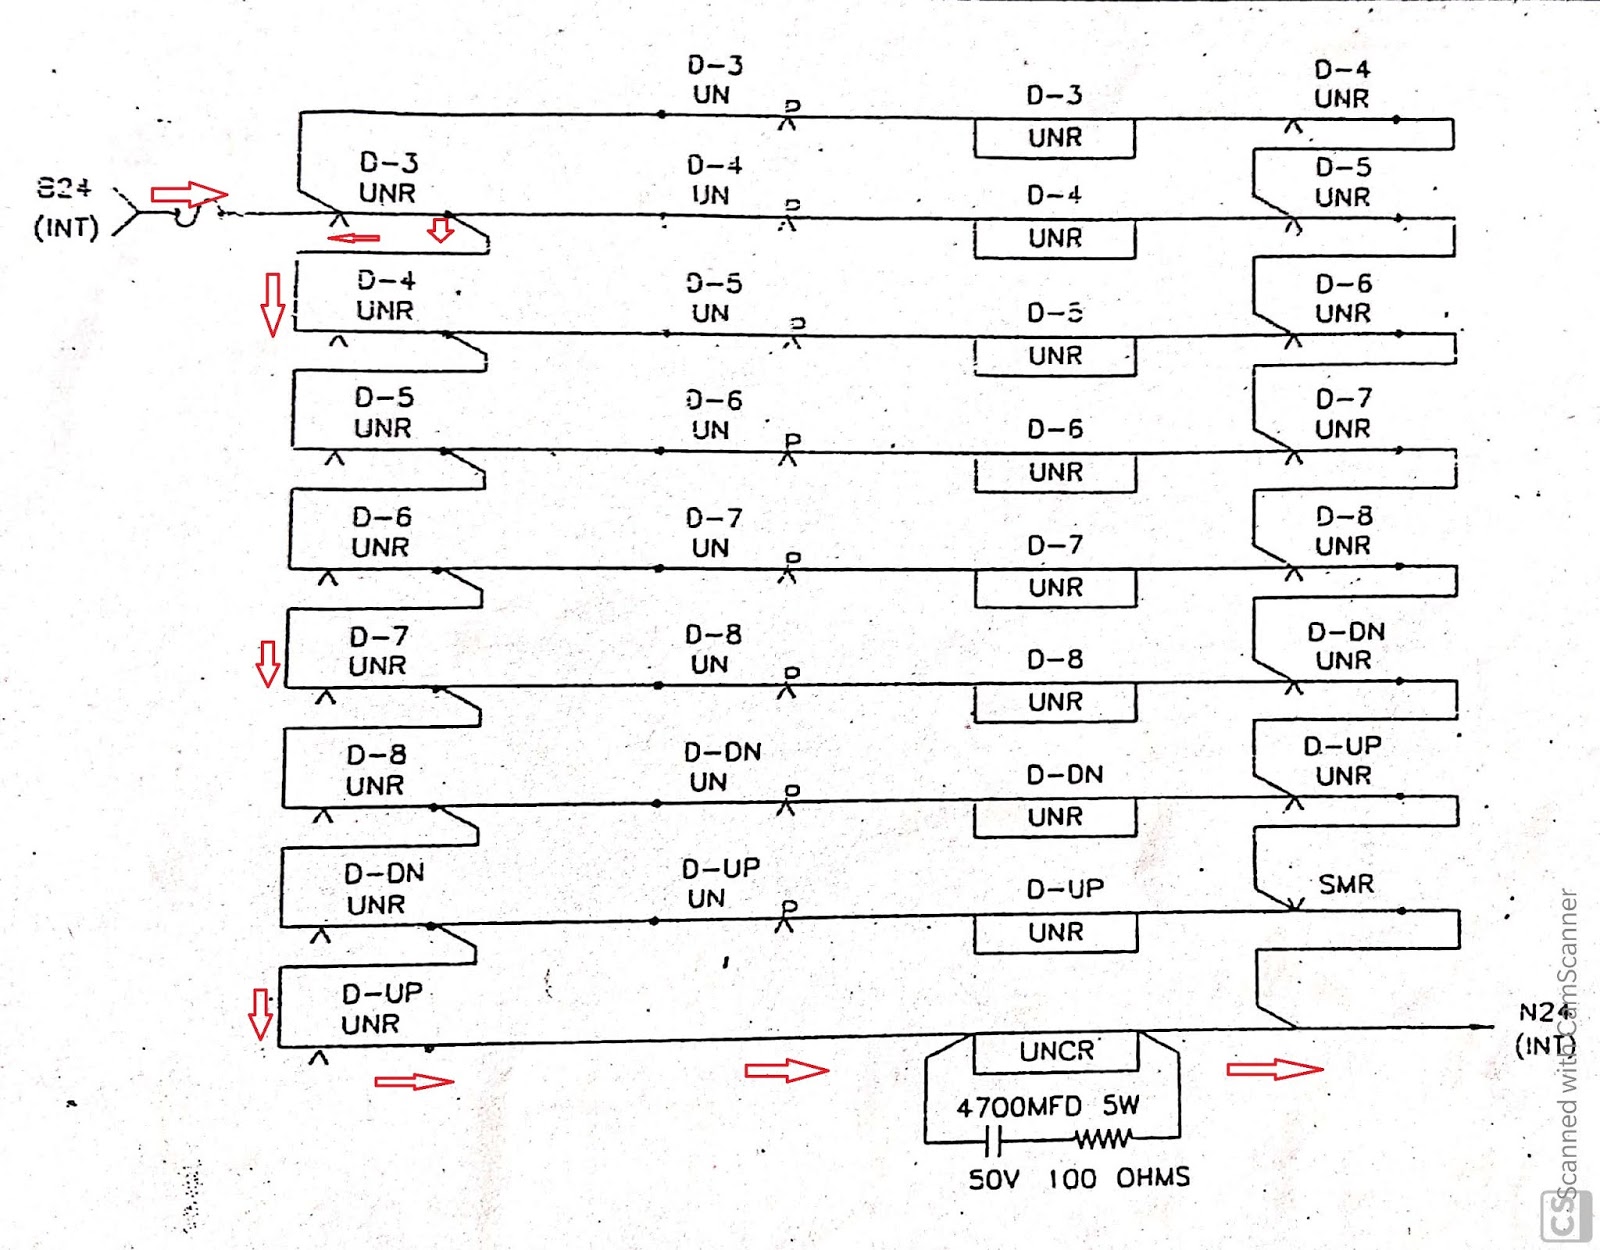 D-3
UN
D-3
UNR
D-4
UNR
B24
(INT)
D-3
UNR
D-4
UN
D-4
UNR
D-5
UNR
D-4
UNR
D-5
UN
D-5
UNR
D-6
UNR
D-5
UNR
D-6
UN
D-6
UNR
D-7
UNR
D-6
UNR
D-7
UN
D-7
UNR
D-8
UNR
D-7
UNR
D-8
UN
D-8
UNR
D-DN
UNR
D-8
UNR
D-DN
UN
D-DN
UNR
D-UP
UNR
D-DN
UNR
D-UP
UN
D-UP
UNR
SMR
D-UP
UNR
UNCR
N24
(INT)
4700MFD 5W
50V 100 OHMS
P
P
P
P
P
P
P
P
CS Scanned with CamScanner